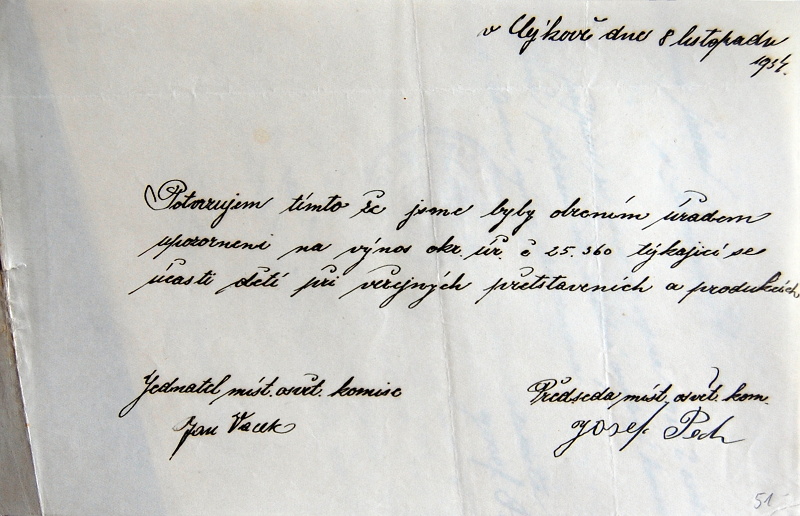 v Újkově dne 8 listopadu
1934.
Potvrzujem tímto že jsme byly obecním úřadem
upozorneni na výnos okr. úř. č 25.360 týkající se
účasti dětí při veřejných přetstaveních a produkcích
Jednatel míst. osvět. komise
Předseda míst. osvět. kom.
Jan Vacek
Josef Pech
51